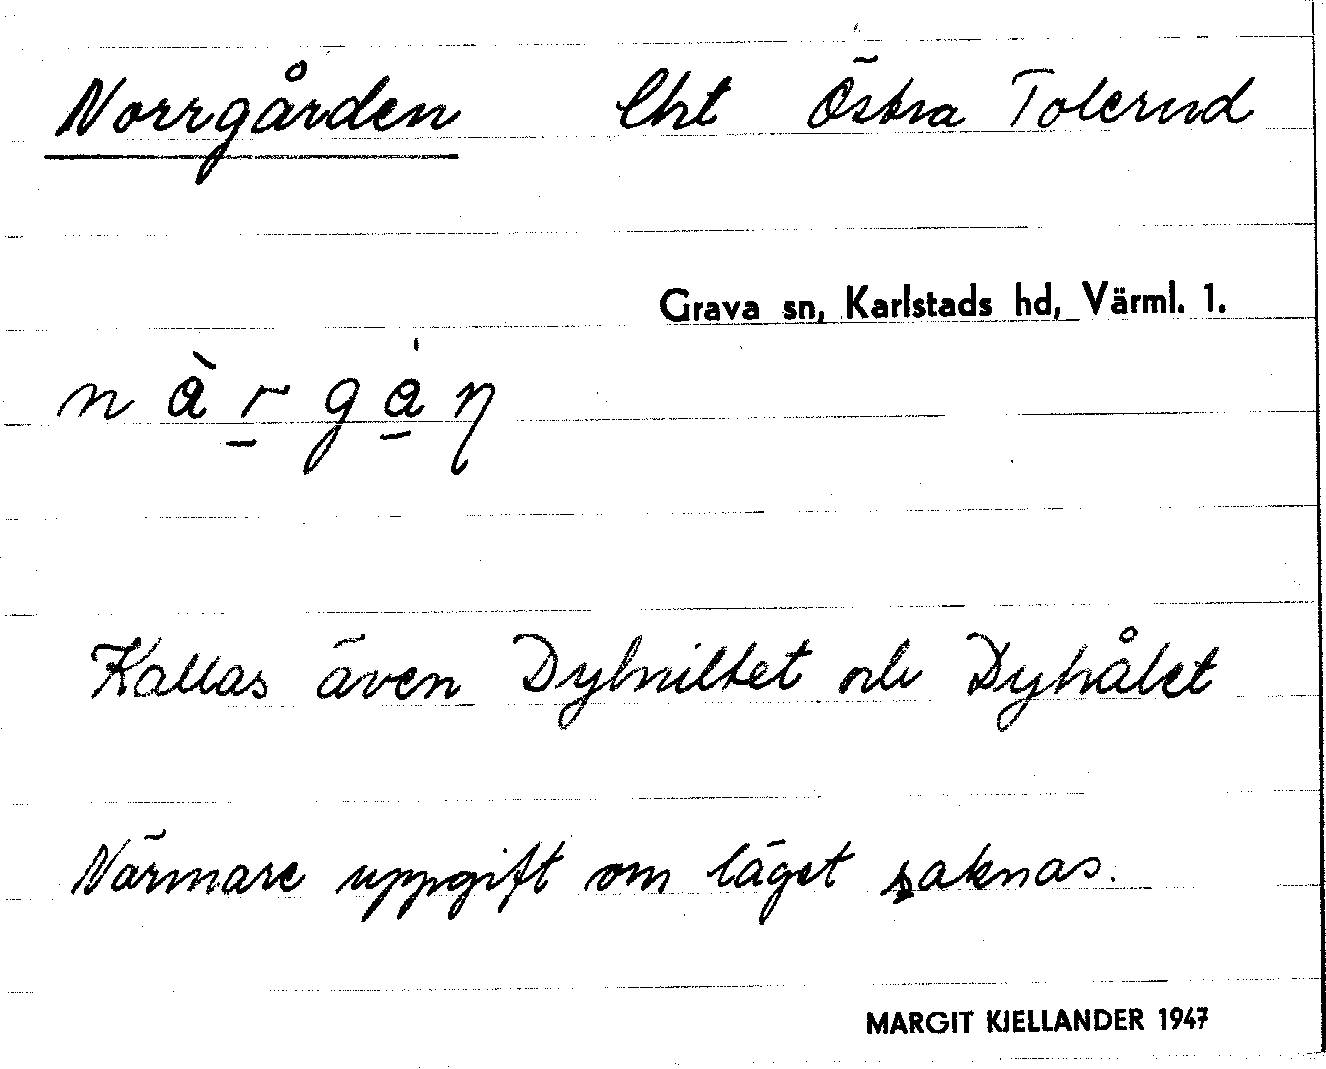 Norrgården lht Östra Tolerud
Grava sn, Karlstads hd, Värml. 1.
n à r g å ŋ
Kallas även Dyhultet och Dyhålet
Närmare uppgift om läget saknas.
MARGIT KJELLANDER 1947